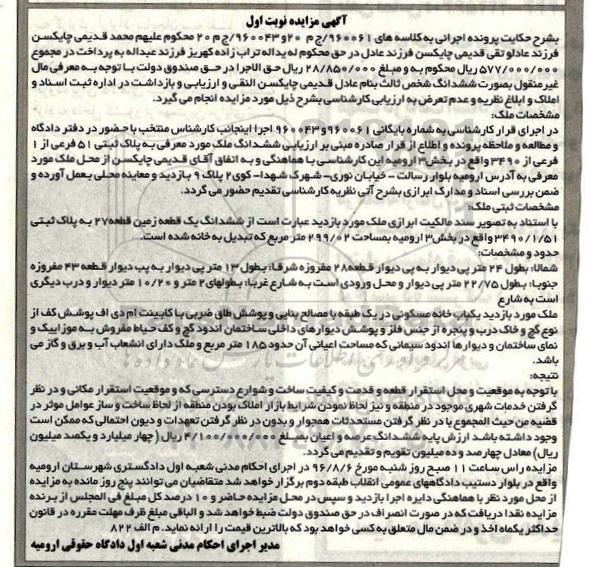 آگهی مزایده نوبت اول
بشرح حکایت پرونده اجرائی به کلاسه های ۹۶۰۰۶۱/ج م ۲۰ و ۹۶۰۰۴۳/ج م ۲۰ محکوم علیهم محمد قدیمی چایکسن
فرزند عادلو تقی قدیمی چایکسن فرزند عادل در حق محکوم له یداله تراب زاده کهریز فرزند عبداله به پرداخت در مجموع
۵۷۷/۰۰۰/۰۰۰ ریال محکوم به و مبلغ ۲۸/۸۵۰/۰۰۰ ریال حق الاجرا در حق صندوق دولت با توجه به معرفی مال
غیر منقول بصورت ششدانگ شخص ثالث بنام عادل قدیمی چایکسن النقی و ارزیابی و بازداشت در اداره ثبت اسناد و
املاک و ابلاغ نظریه و عدم تعرض به ارزیابی کارشناسی بشرح ذیل مورد مزایده انجام می گیرد.
مشخصات ملک:
در اجرای قرار کارشناسی به شماره بایگانی ۹۶۰۰۶۱ و ۹۶۰۰۴۳ اجرا اینجانب کارشناس منتخب با حضور در دفتر دادگاه
و مطالعه و ملاحظه پرونده و اطلاع از قرار صادره مبنی بر ارزیابی ششدانگ ملک مورد معرفی به پلاک ثبتی ۵۱ فرعی از ۱
فرعی از ۳۴۹۰ واقع در بخش ۳ ارومیه این کارشناسی با هماهنگی و به اتفاق آقای قدیمی چایکسن از محل ملک مورد
معرفی به آدرس ارومیه بلوار رسالت - خیابان نوری- شهرک شهدا- کوی ۲ پلاک ۹ بازدید و معاینه محلی بعمل آورده و
ضمن بررسی اسناد و مدارک ابرازی بشرح آتی نظریه کارشناسی تقدیم حضور می گردد.
مشخصات ثبتی ملک:
با استناد به تصویر سند مالکیت ابرازی ملک مورد بازدید عبارت است از ششدانگ یک قطعه زمین قطعه ۲۷ به پلاک ثبتی
۳۴۹۰/۱/۵۱ واقع در بخش ۳ ارومیه بمساحت ۲۹۹/۰۲ متر مربع که تبدیل به خانه شده است.
حدود و مشخصات:
شمالا: بطول ۲۴ متر پی دیوار به پی دیوار قطعه ۲۸ مفروزه شرقا: بطول ۱۳ متر پی دیوار به پی دیوار قطعه ۴۳ مفروزه
جنوبا: بطول ۲۲/۷۵ متر پی دیوار و محل ورودی است به شارع غربا: بطولهای ۲ متر و ۱۰/۲۰ متر دیوار و درب دیگری
است به شارع
ملک مورد بازدید یکباب خانه مسکونی در یک طبقه با مصالح بنایی و پوشش طاق ضربی با کابینت ام دی اف پوشش کف از
نوع گچ و خاک درب و پنجره از جنس فلز و پوشش دیوارهای داخلی ساختمان اندود گچ و کف حیاط مفروش به موزاییک و
نمای ساختمان و دیوارها اندود سیمانی که مساحت اعیانی آن حدود ۱۸۵ متر مربع و ملک دارای انشعاب آب و برق و گاز می
باشد.
نتیجه:
با توجه به موقعیت و محل استقرار قطعه و قدمت و کیفیت ساخت و شوارع دسترسی که و موقعیت استقرار مکانی و در نظر
گرفتن خدمات شهری موجود در منطقه و نیز لحاظ نمودن شرایط بازار املاک بودن منطقه از لحاظ ساخت و ساز عوامل موثر در
قضیه من حیث المجموع با در نظر گرفتن مستحدثات همجوار و بدون در نظر گرفتن تعهدات و دیون احتمالی که ممکن است
وجود داشته باشد ارزش پایه ششدانگ عرصه و اعیان بمبلغ ۴/۱۰۰/۰۰۰/۰۰۰ ریال (چهار میلیارد و یکصد میلیون
ریال) معادل چهارصد و ده میلیون تقویم و تقدیم می گردد.
مزایده راس ساعت ۱۱ صبح روز شنبه مورخ ۹۶/۸/۶ در اجرای احکام مدنی شعبه اول دادگستری شهرستان ارومیه
واقع در بلوار دستیب دادگاههای عمومی انقلاب طبقه دوم برگزار خواهد شد متقاضیان می توانند پنج روز مانده به مزایده
از محل مورد نظر با هماهنگی دایره اجرا بازدید و سپس در محل مزایده حاضر و ۱۰ درصد کل مبلغ فی المجلس از برنده
مزایده نقدا دریافت که در صورت انصراف در حق صندوق دولت ضبط خواهد شد و الباقی مبلغ ظرف مهلت مقرره در قانون
حداکثر یکماه اخذ و در ضمن مال متعلق به کسی خواهد بود که بالاترین قیمت را ارائه نماید. م الف ۸۲۲
مدیر اجرای احکام مدنی شعبه اول دادگاه حقوقی ارومیه